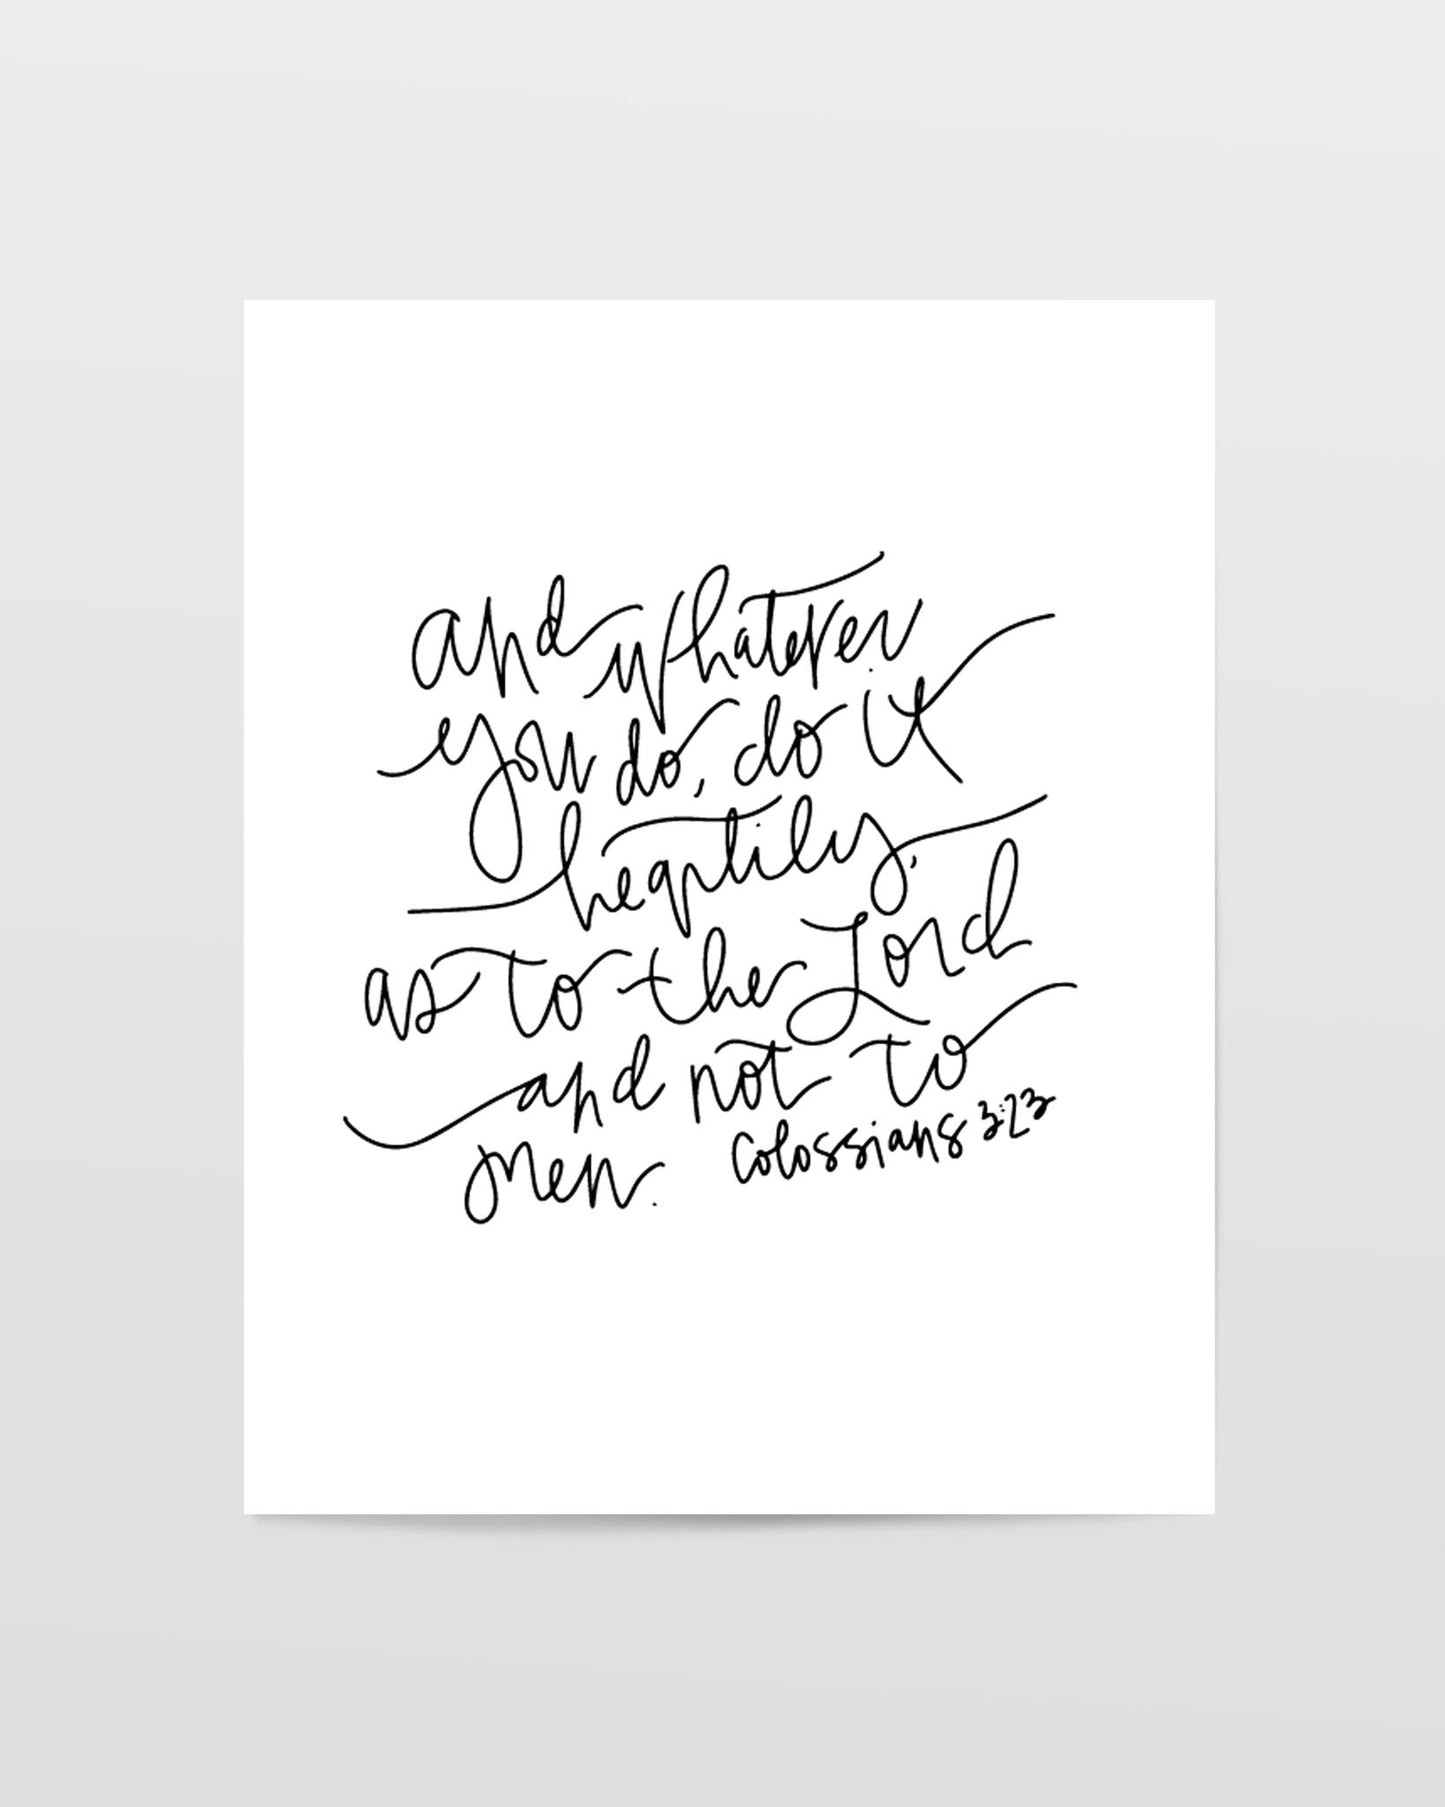 and whatever
you do, do it
heartily,
as to the Lord
and not to
men. Colossians 3:23